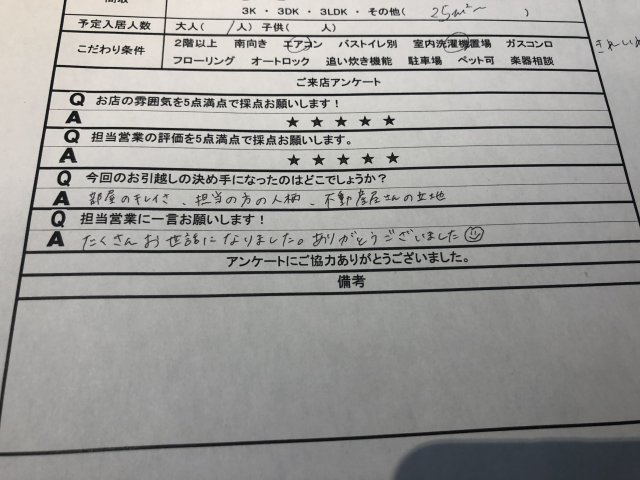 3K ・ 3DK ・ 3LDK ・ その他( 25㎡〜 )
予定入居人数 大人( / 人) 子供( 人)
こだわり条件 2階以上 南向き エアコン バストイレ別 室内洗濯機置場 ガスコンロ
フローリング オートロック 追い炊き機能 駐車場 ペット可 楽器相談
ご来店アンケート
Q お店の雰囲気を5点満点で採点お願いします！
A ★ ★ ★ ★ ★
Q 担当営業の評価を5点満点で採点お願いします。
A ★ ★ ★ ★ ★
Q 今回のお引越しの決め手になったのはどこでしょうか？
A 部屋のキレイさ、担当の方の人柄、不動産屋さんの立地
Q 担当営業に一言お願いします！
A たくさんお世話になりました。ありがとうございました☺
アンケートにご協力ありがとうございました。
備考